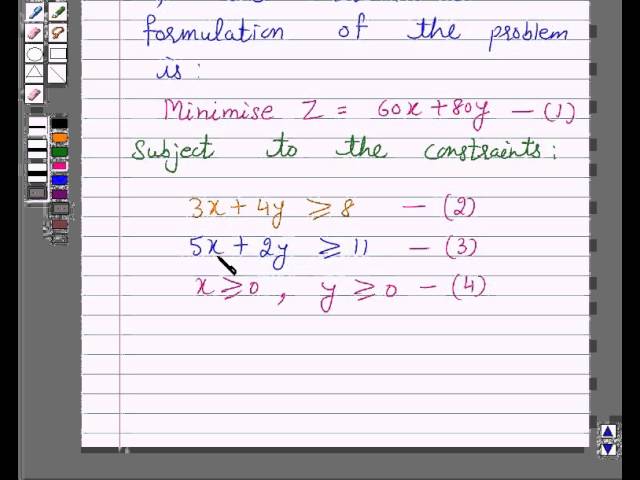 formulation of the problem
is :
Minimise Z = 60x + 80y — (1)
Subject to the constraints :
3x + 4y ≥ 8 — (2)
5x + 2y ≥ 11 — (3)
x ≥ 0 , y ≥ 0 — (4)